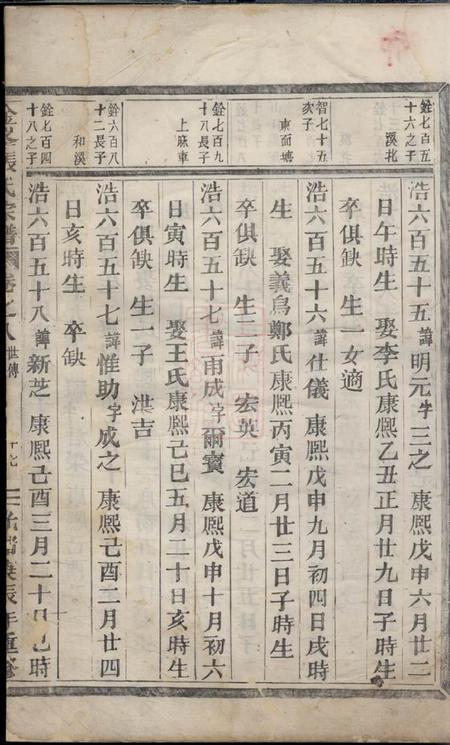 銓七百五
十六之子
溪北
浩六百五十五 諱明元字三之 康熙戊申六月廿二
日午時生 娶李氏康熙乙丑正月廿九日子時生
卒俱缺 生一女適
智七十五
次子
東面塘
浩六百五十六 諱仕儀 康熙戊申九月初四日戌時
生 娶義烏鄭氏康熙丙寅二月廿三日子時生
卒俱缺 生二子 宏英 宏道
銓七百九
十八長子
上麻車
浩六百五十七 諱雨成字爾賓 康熙戊申十月初六
日寅時生 娶王氏康熙己巳五月二十日亥時生
卒俱缺 生一子 洪吉
銓六百八
十二長子
和溪
浩六百五十七 諱惟助字成之 康熙己酉二月廿四
日亥時生 卒缺
銓七百四
十八之子
浩六百五十八 諱新芝 康熙己酉三月二十日巳時
張氏宗譜 卷之八 世傳 十七
辰年重修